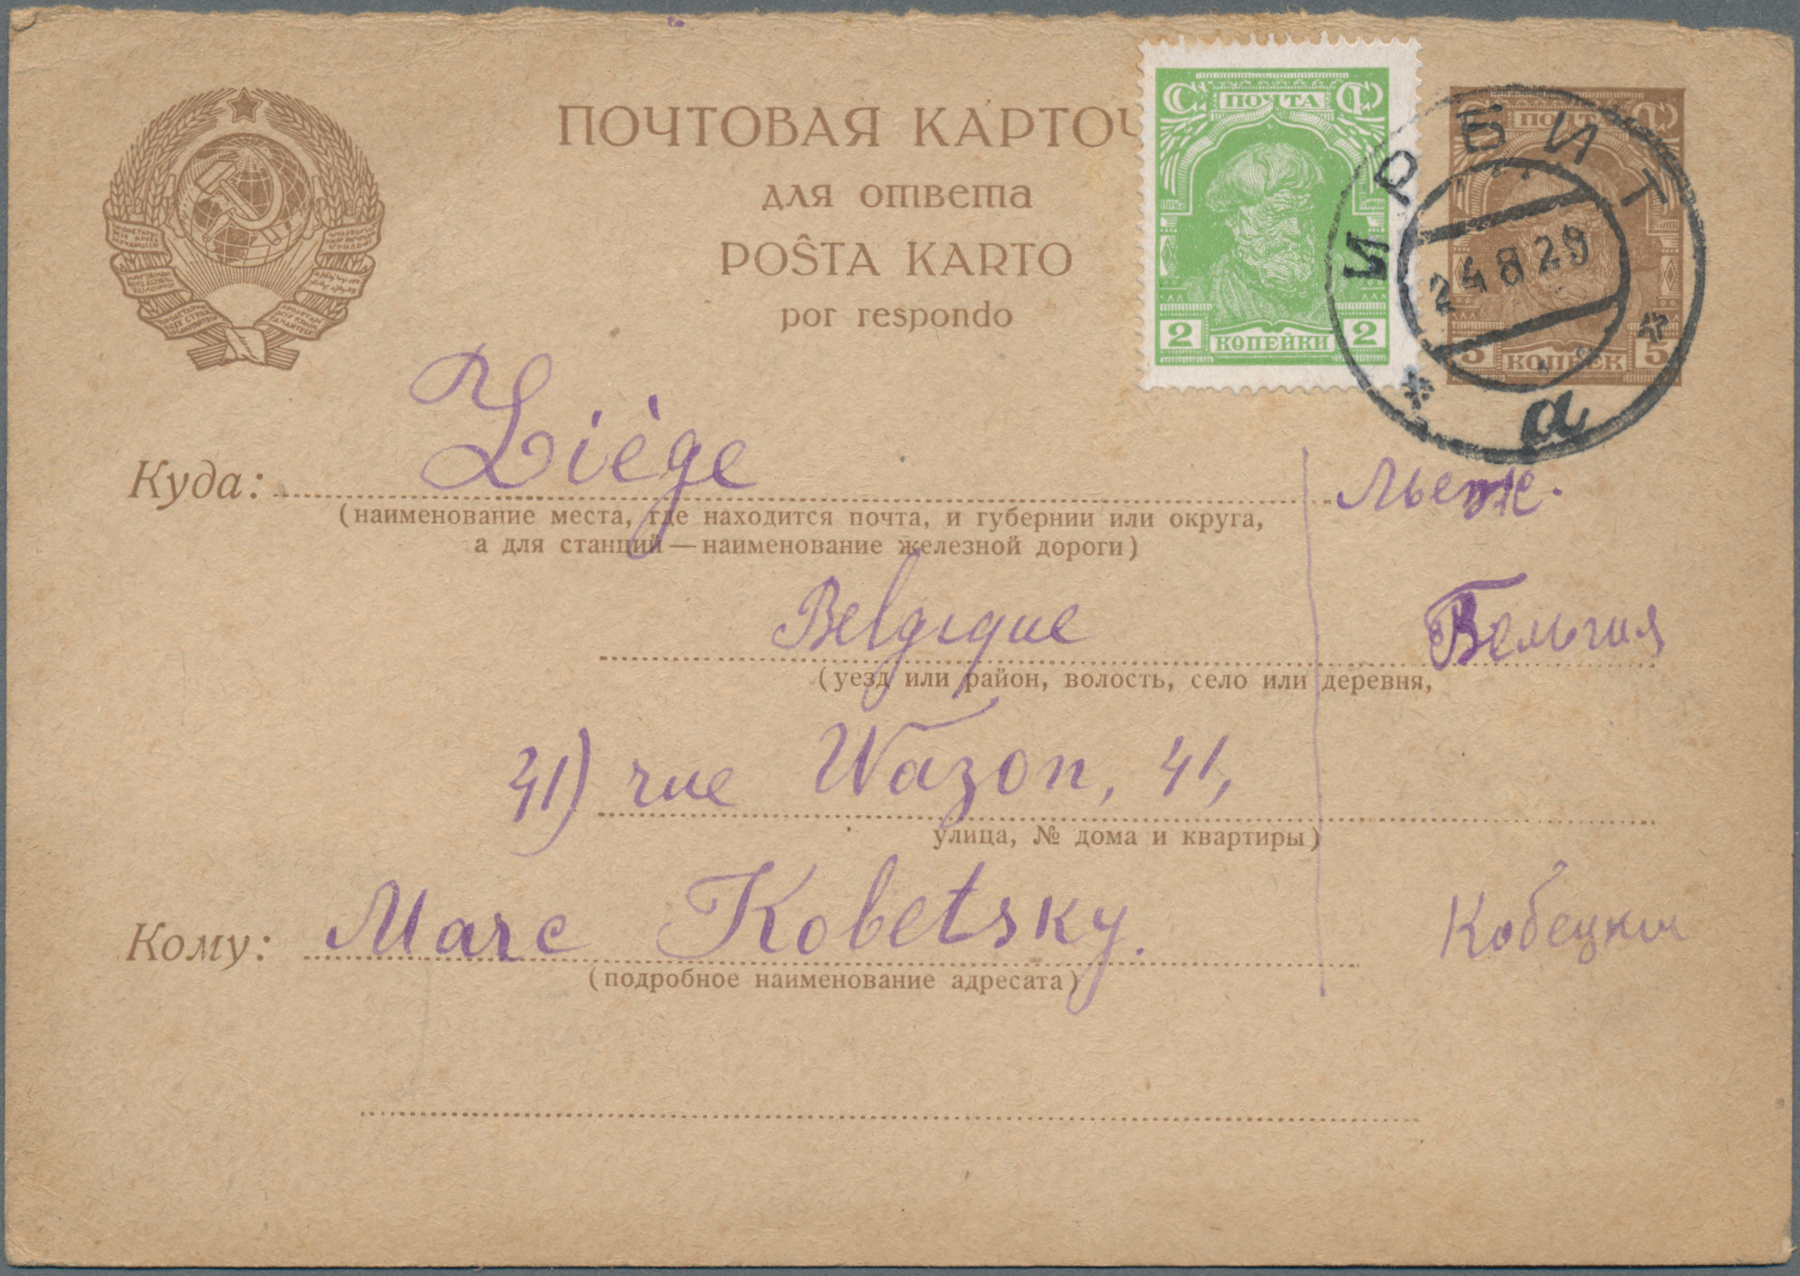 ПОЧТОВАЯ КАРТОЧ
для ответа
POŜTA KARTO
por respondo
ПОЧТА
2 КОПЕЙКИ 2
ПОЧТА
5 КОПЕЕК 5
ИРБИТ
24 8 29
а
Куда: Liège Льеж.
(наименование места, где находится почта, и губернии или округа,
а для станций — наименование железной дороги)
Belgique Бельгия
(уезд или район, волость, село или деревня,
41) rue Wazon, 41,
улица, № дома и квартиры)
Кому: Marc Kobetsky. Кобецкии
(подробное наименование адресата)